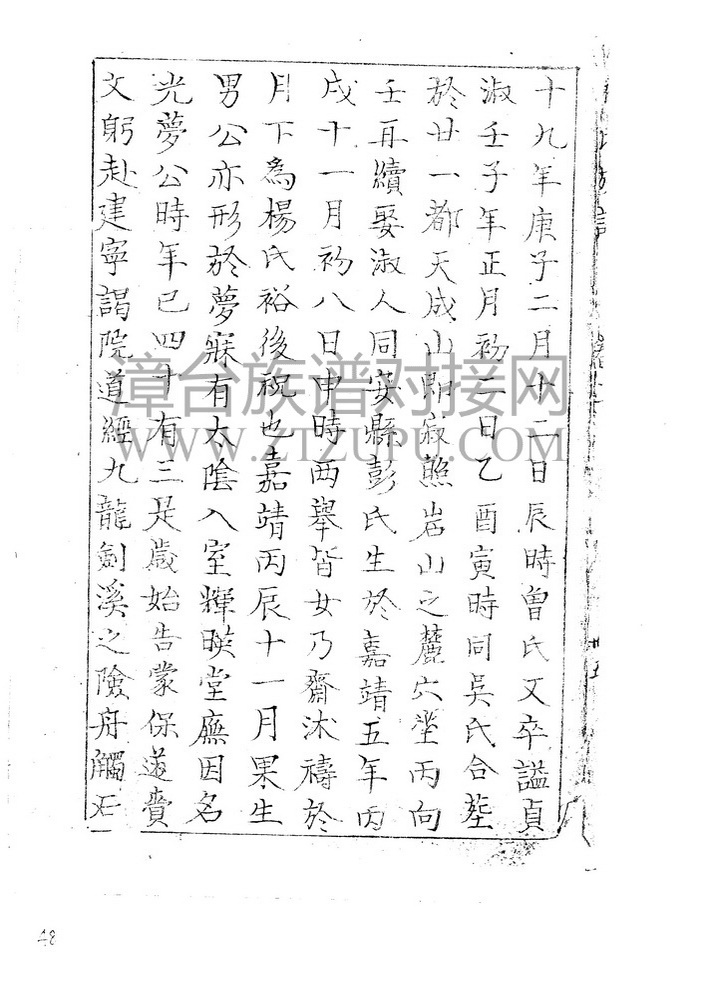 十九年庚子二月十二日辰時曾氏又卒謚貞
淑壬子年正月初二日乙酉寅時同吳氏合塟
於廿一都天成山即寂照岩山之麓穴坐丙向
壬再續娶淑人同安縣彭氏生於嘉靖五年丙
戌十一月初八日申時两舉皆女乃齋沐禱於
月下為楊氏裕後祝也嘉靖丙辰十一月果生
男公亦形於夢寐有太陰入室輝暎堂廡因名
光夢公時年已四十有三是歲始告蒙保送賫
文躬赴建寧謁院道經九龍劍溪之險舟觸石
漳台族谱对接网
WWW.ZTZUPU.COM
48